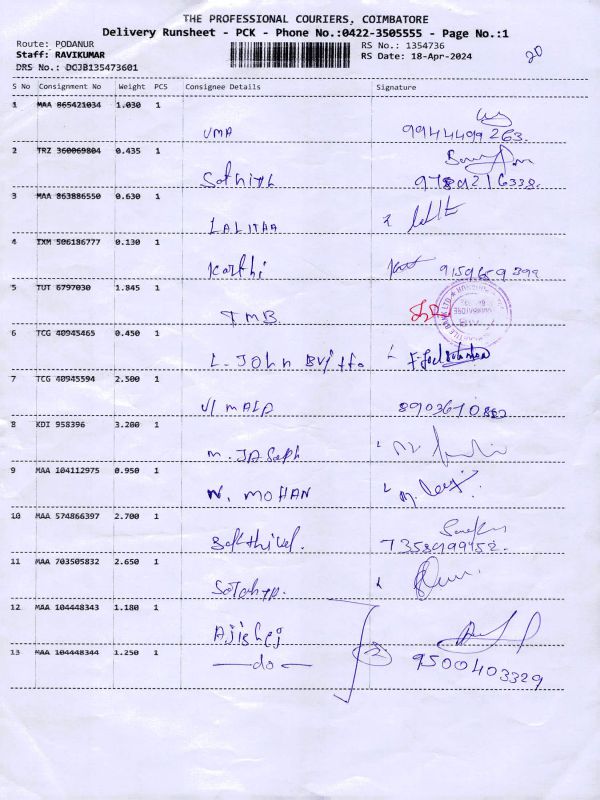 THE PROFESSIONAL COURIERS, COIMBATORE
Delivery Runsheet - PCK - Phone No.:0422-3505555 - Page No.:1
Route: PODANUR RS No.: 1354736
Staff: RAVIKUMAR RS Date: 18-Apr-2024
20
DRS No.: DCJB135473601
S No Consignment No Weight PCS Consignee Details Signature
1 MAA 865421034 1.030 1
UMA 9944499263.
2 TRZ 360069804 0.435 1
Sathiya
3 MAA 863886550 0.630 1
LALITHA
4 IXM 506186777 0.130 1
Karthi
5 TUT 6797030 1.845 1
TMB
6 TCG 40945465 0.450 1
L. JOHN
7 TCG 40945594 2.500 1
8 KDI 958396 3.200 1
9 MAA 104112975 0.950 1
N. MOHAN
10 MAA 574866397 2.700 1
Sakthivel.
11 MAA 703505832 2.650 1
12 MAA 104448343 1.180 1
13 MAA 104448344 1.250 1
— do — 2 9500403329